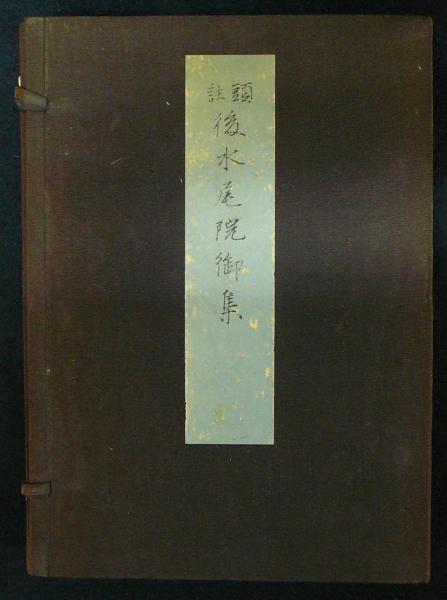 頭註
後水尾院御集